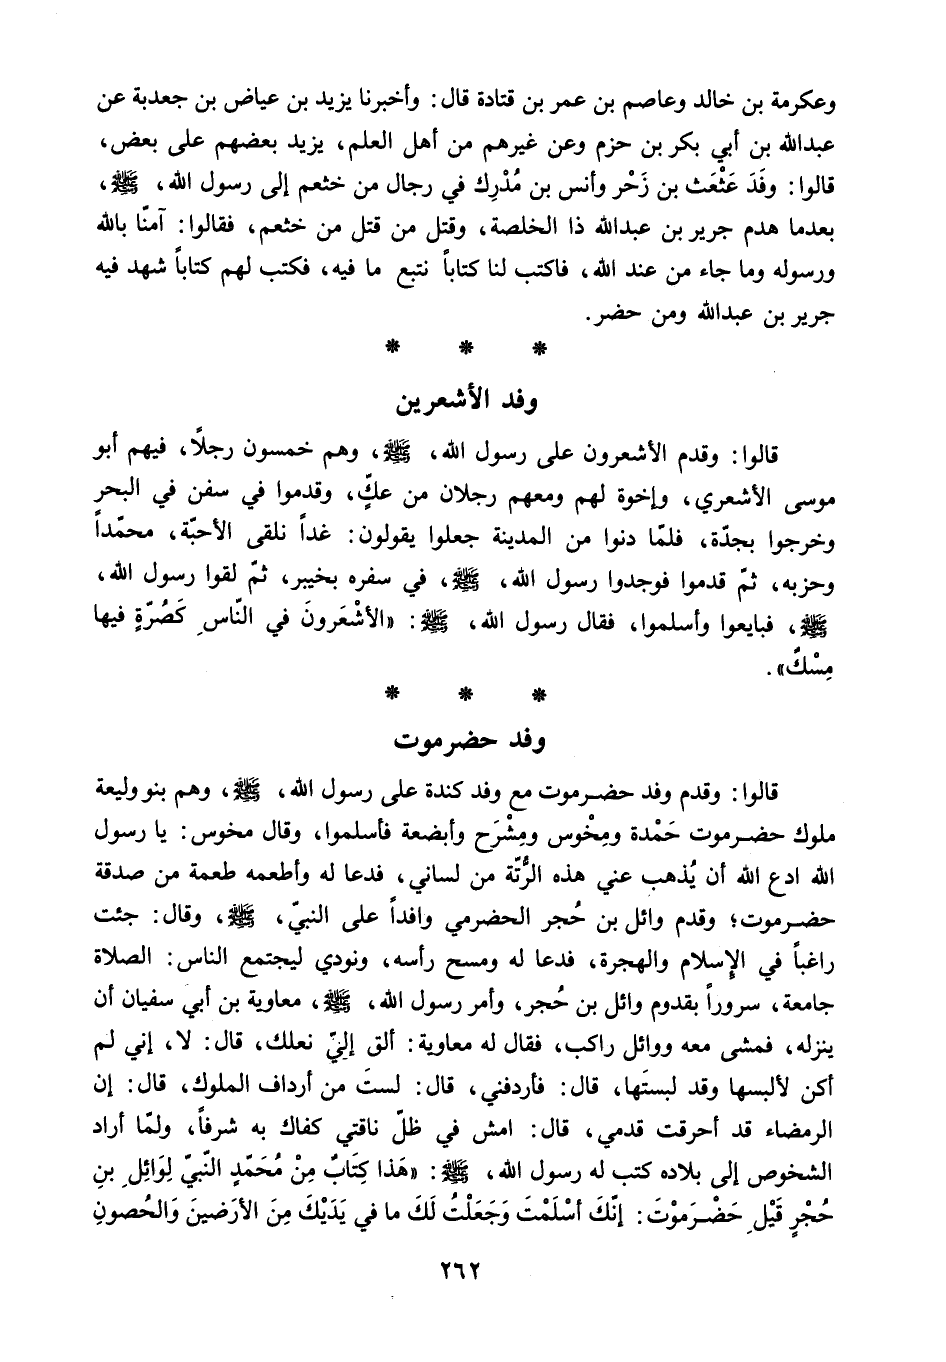 وعكرمة بن خالد وعاصم بن عمر بن قتادة قال: وأخبرنا يزيد بن عياض بن جعدبة عن
عبدالله بن أبي بكر بن حزم وعن غيرهم من أهل العلم، يزيد بعضهم على بعض،
قالوا: وفَدَ عَثْعَث بن زَحْر وأنس بن مُدْرِك في رجال من خثعم إلى رسول الله، ﷺ،
بعدما هدم جرير بن عبدالله ذا الخلصة، وقتل من قتل من خثعم، فقالوا: آمنّا بالله
ورسوله وما جاء من عند الله، فاكتب لنا كتاباً نتبع ما فيه، فكتب لهم كتاباً شهد فيه
جرير بن عبدالله ومن حضر.
* * *
وفد الأشعرين
قالوا: وقدم الأشعرون على رسول الله، ﷺ، وهم خمسون رجلًا، فيهم أبو
موسى الأشعري، وإخوة لهم ومعهم رجلان من عكٍّ، وقدموا في سفن في البحر
وخرجوا بجدّة، فلمّا دنوا من المدينة جعلوا يقولون: غداً نلقى الأحبّة، محمّداً
وحزبه، ثمّ قدموا فوجدوا رسول الله، ﷺ، في سفره بخيبر، ثمّ لقوا رسول الله،
ﷺ، فبايعوا وأسلموا، فقال رسول الله، ﷺ: «الأشْعَرونَ في النّاسِ كَصُرّةٍ فيها
مِسْكٌ».
* * *
وفد حضرموت
قالوا: وقدم وفد حضرموت مع وفد كندة على رسول الله، ﷺ، وهم بنو وليعة
ملوك حضرموت حَمْدة ومِخْوس ومِشْرَح وأبضعة فأسلموا، وقال مخوس: يا رسول
الله ادع الله أن يُذهب عني هذه الرُّتّة من لساني، فدعا له وأطعمه طعمة من صدقة
حضرموت؛ وقدم وائل بن حُجر الحضرمي وافداً على النبيّ، ﷺ، وقال: جئت
راغباً في الإسلام والهجرة، فدعا له ومسح رأسه، ونودي ليجتمع الناس: الصلاة
جامعة، سروراً بقدوم وائل بن حُجر، وأمر رسول الله، ﷺ، معاوية بن أبي سفيان أن
ينزله، فمشى معه ووائل راكب، فقال له معاوية: ألق إليّ نعلك، قال: لا، إني لم
أكن لألبسها وقد لبستَها، قال: فأردفني، قال: لستَ من أرداف الملوك، قال: إن
الرمضاء قد أحرقت قدمي، قال: امش في ظلّ ناقتي كفاك به شرفاً، ولمّا أراد
الشخوص إلى بلاده كتب له رسول الله، ﷺ: «هَذا كِتَابٌ مِنْ مُحَمّدٍ النّبيّ لِوَائِلِ بنِ
حُجْرٍ قَيْلِ حَضْرَموْتَ: إنّكَ أسْلَمْتَ وَجَعَلْتُ لَكَ ما في يَدَيْكَ مِنَ الأرَضينَ وَالحُصونِ
٢٦٢